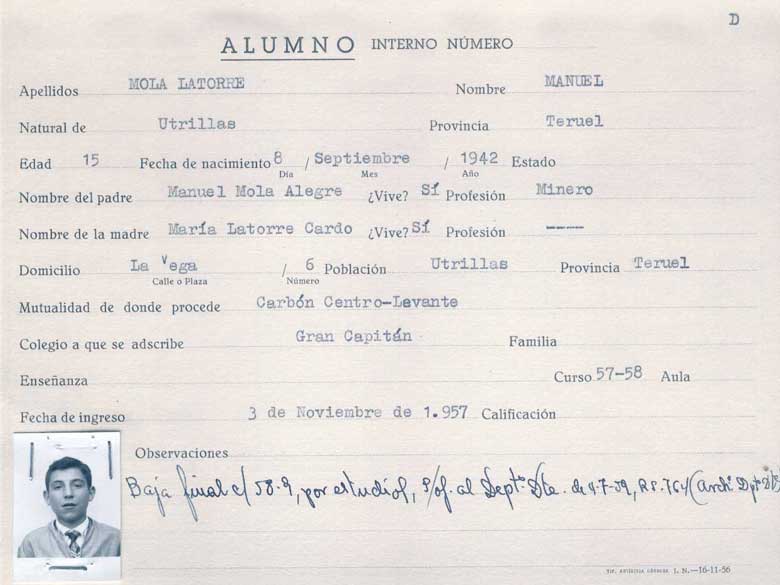 D
ALUMNO INTERNO NÚMERO
Apellidos MOLA LATORRE Nombre MANUEL
Natural de Utrillas Provincia Teruel
Edad 15 Fecha de nacimiento 8 / Septiembre / 1942 Estado
Día Mes Año
Nombre del padre Manuel Mola Alegre ¿Vive? Sí Profesión Minero
Nombre de la madre María Latorre Cardo ¿Vive? Sí Profesión —
Domicilio La Vega / 6 Población Utrillas Provincia Teruel
Calle o Plaza Número
Mutualidad de donde procede Carbón Centro-Levante
Colegio a que se adscribe Gran Capitán Familia
Enseñanza Curso 57-58 Aula
Fecha de ingreso 3 de Noviembre de 1.957 Calificación
Observaciones
Baja final c/ 58-9, por estudios, s/of. al Dptº Dte. de 4-7-59, R.S. 764 (Arch.
I. N.—16-11-56